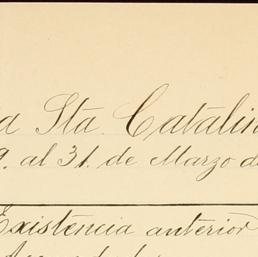 a Sta. Catalin
9. al 31. de Marzo de
Existencia anterior